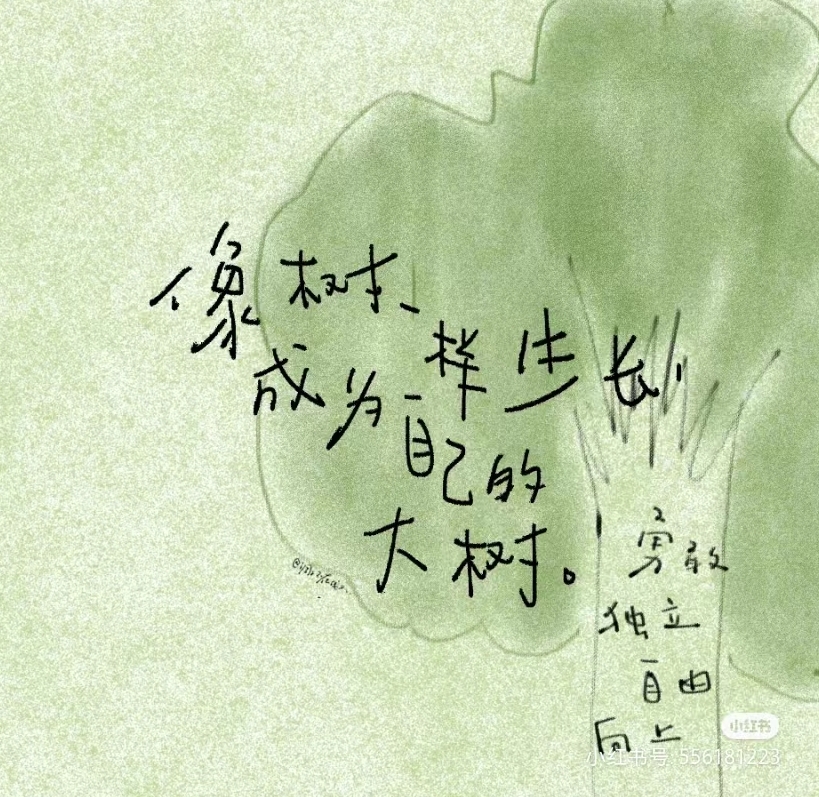 像树一样生长,
成为自己的
大树。
勇敢
独立
自由
向上
小红书
小红书号 556181223